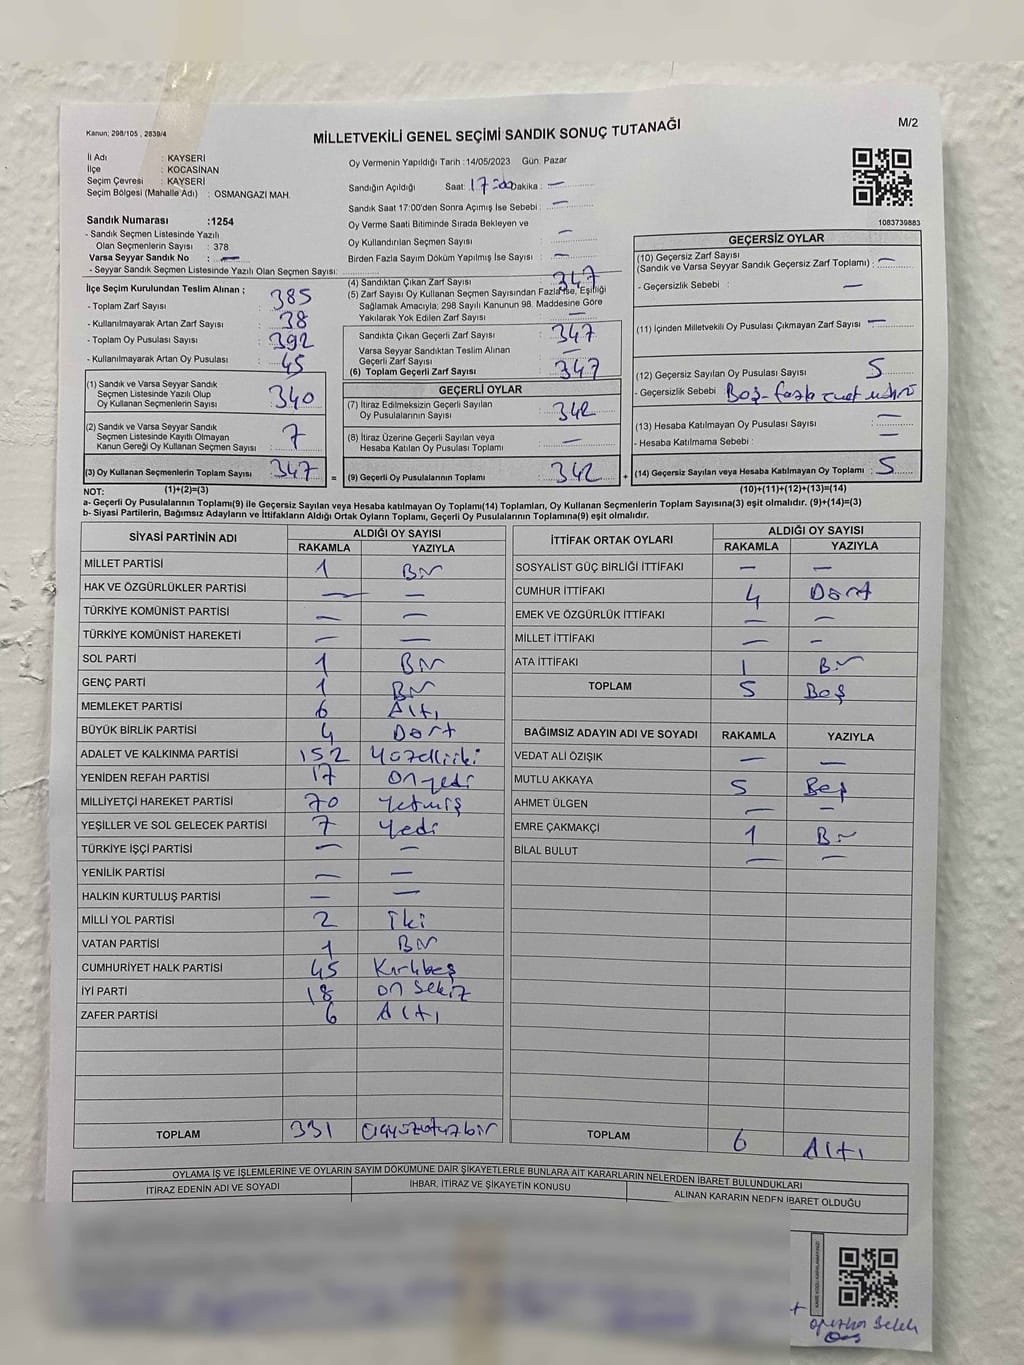 Kanun; 298/105 , 2839/4
MİLLETVEKİLİ GENEL SEÇİMİ SANDIK SONUÇ TUTANAĞI
M/2
İl Adı : KAYSERİ
İlçe : KOCASİNAN
Seçim Çevresi : KAYSERİ
Seçim Bölgesi (Mahalle Adı) : OSMANGAZİ MAH.
Sandık Numarası :1254
- Sandık Seçmen Listesinde Yazılı
Olan Seçmenlerin Sayısı : 378
Varsa Seyyar Sandık No : —
- Seyyar Sandık Seçmen Listesinde Yazılı Olan Seçmen Sayısı:
Oy Vermenin Yapıldığı Tarih :14/05/2023 Gün: Pazar
Sandığın Açıldığı Saat: 17:00 Dakika : —
Sandık Saat 17:00'den Sonra Açımış İse Sebebi : —
Oy Verme Saati Bitiminde Sırada Bekleyen ve
Oy Kullandırılan Seçmen Sayısı : —
Birden Fazla Sayım Döküm Yapılmış İse Sayısı : —
1083739883
İlçe Seçim Kurulundan Teslim Alınan ;
- Toplam Zarf Sayısı : 385
- Kullanılmayarak Artan Zarf Sayısı : 38
- Toplam Oy Pusulası Sayısı : 392
- Kullanılmayarak Artan Oy Pusulası : 45
(1) Sandık ve Varsa Seyyar Sandık
Seçmen Listesinde Yazılı Olup
Oy Kullanan Seçmenlerin Sayısı : 340
(2) Sandık ve Varsa Seyyar Sandık
Seçmen Listesinde Kayıtlı Olmayan
Kanun Gereği Oy Kullanan Seçmen Sayısı : 7
(3) Oy Kullanan Seçmenlerin Toplam Sayısı : 347
(1)+(2)=(3)
(4) Sandıktan Çıkan Zarf Sayısı : 347
(5) Zarf Sayısı Oy Kullanan Seçmen Sayısından Fazla İse, Eşitliği
Sağlamak Amacıyla; 298 Sayılı Kanunun 98. Maddesine Göre
Yakılarak Yok Edilen Zarf Sayısı : —
Sandıkta Çıkan Geçerli Zarf Sayısı : 347
Varsa Seyyar Sandıktan Teslim Alınan
Geçerli Zarf Sayısı : —
(6) Toplam Geçerli Zarf Sayısı : 347
GEÇERLİ OYLAR
(7) İtiraz Edilmeksizin Geçerli Sayılan
Oy Pusulalarının Sayısı : 342
(8) İtiraz Üzerine Geçerli Sayılan veya
Hesaba Katılan Oy Pusulası Toplamı : —
= (9) Geçerli Oy Pusulalarının Toplamı : 342 +
GEÇERSİZ OYLAR
(10) Geçersiz Zarf Sayısı
(Sandık ve Varsa Seyyar Sandık Geçersiz Zarf Toplamı) : —
- Geçersizlik Sebebi : —
(11) İçinden Milletvekili Oy Pusulası Çıkmayan Zarf Sayısı : —
(12) Geçersiz Sayılan Oy Pusulası Sayısı : 5
- Geçersizlik Sebebi : Boş-fazla
(13) Hesaba Katılmayan Oy Pusulası Sayısı : —
- Hesaba Katılmama Sebebi : —
(14) Geçersiz Sayılan veya Hesaba Katılmayan Oy Toplamı : 5
(10)+(11)+(12)+(13)=(14)
NOT:
a- Geçerli Oy Pusulalarının Toplamı(9) ile Geçersiz Sayılan veya Hesaba katılmayan Oy Toplamı(14) Toplamları, Oy Kullanan Seçmenlerin Toplam Sayısına(3) eşit olmalıdır. (9)+(14)=(3)
b- Siyasi Partilerin, Bağımsız Adayların ve İttifakların Aldığı Ortak Oyların Toplamı, Geçerli Oy Pusulalarının Toplamına(9) eşit olmalıdır.
SİYASİ PARTİNİN ADI ALDIĞI OY SAYISI
RAKAMLA YAZIYLA
MİLLET PARTİSİ 1 Bir
HAK VE ÖZGÜRLÜKLER PARTİSİ — —
TÜRKİYE KOMÜNİST PARTİSİ — —
TÜRKİYE KOMÜNİST HAREKETİ — —
SOL PARTİ 1 Bir
GENÇ PARTİ 1 Bir
MEMLEKET PARTİSİ 6 Altı
BÜYÜK BİRLİK PARTİSİ 4 Dört
ADALET VE KALKINMA PARTİSİ 152 Yüzelliiki
YENİDEN REFAH PARTİSİ 17 Onyedi
MİLLİYETÇİ HAREKET PARTİSİ 70 Yetmiş
YEŞİLLER VE SOL GELECEK PARTİSİ 7 Yedi
TÜRKİYE İŞÇİ PARTİSİ — —
YENİLİK PARTİSİ — —
HALKIN KURTULUŞ PARTİSİ — —
MİLLİ YOL PARTİSİ 2 İki
VATAN PARTİSİ 1 Bir
CUMHURİYET HALK PARTİSİ 45 Kırkbeş
İYİ PARTİ 18 On Sekiz
ZAFER PARTİSİ 6 Altı
TOPLAM 331 Üçyüzotuzbir
İTTİFAK ORTAK OYLARI ALDIĞI OY SAYISI
RAKAMLA YAZIYLA
SOSYALİST GÜÇ BİRLİĞİ İTTİFAKI — —
CUMHUR İTTİFAKI 4 Dört
EMEK VE ÖZGÜRLÜK İTTİFAKI — —
MİLLET İTTİFAKI — —
ATA İTTİFAKI 1 Bir
TOPLAM 5 Beş
BAĞIMSIZ ADAYIN ADI VE SOYADI RAKAMLA YAZIYLA
VEDAT ALİ ÖZIŞIK — —
MUTLU AKKAYA 5 Beş
AHMET ÜLGEN — —
EMRE ÇAKMAKÇİ 1 Bir
BİLAL BULUT — —
TOPLAM 6 Altı
OYLAMA İŞ VE İŞLEMLERİNE VE OYLARIN SAYIM DÖKÜMÜNE DAİR ŞİKAYETLERLE BUNLARA AİT KARARLARIN NELERDEN İBARET BULUNDUKLARI
İTİRAZ EDENİN ADI VE SOYADI İHBAR, İTİRAZ VE ŞİKAYETİN KONUSU ALINAN KARARIN NEDEN İBARET OLDUĞU